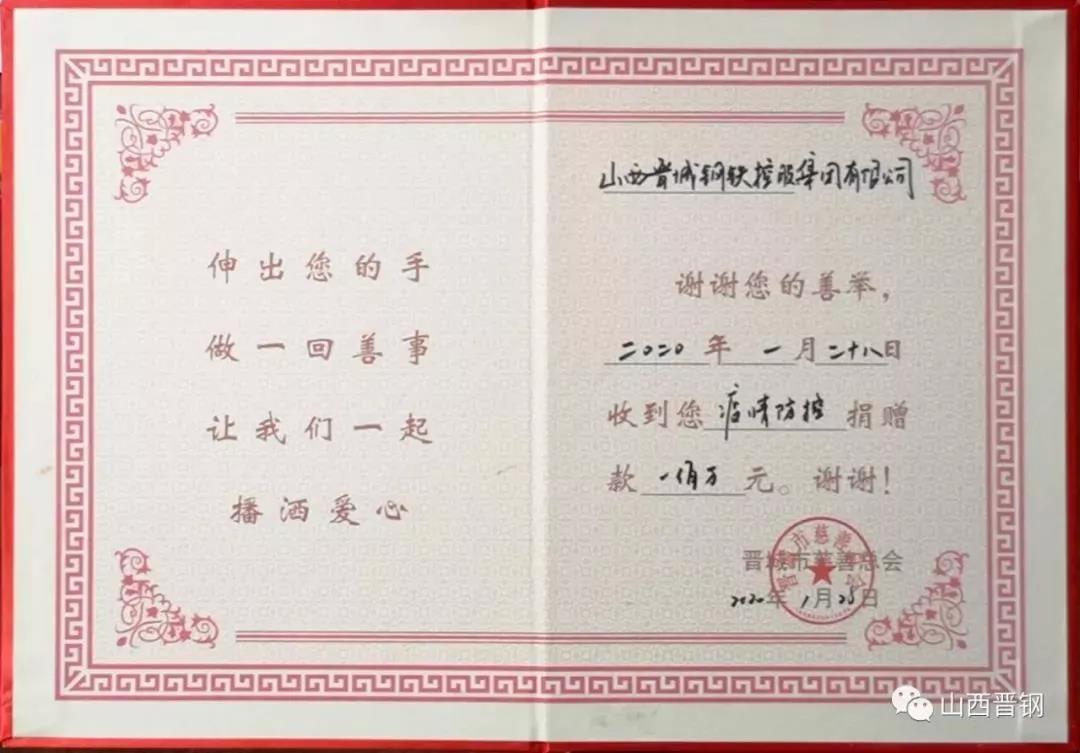 伸出您的手
做一回善事
让我们一起
播洒爱心
山西晋城钢铁控股集团有限公司
谢谢您的善举，
二〇二〇年一月二十八日
收到您疫情防控捐赠
款一佰万元。谢谢！
晋城市慈善总会
2020年1月28日
山西晋钢